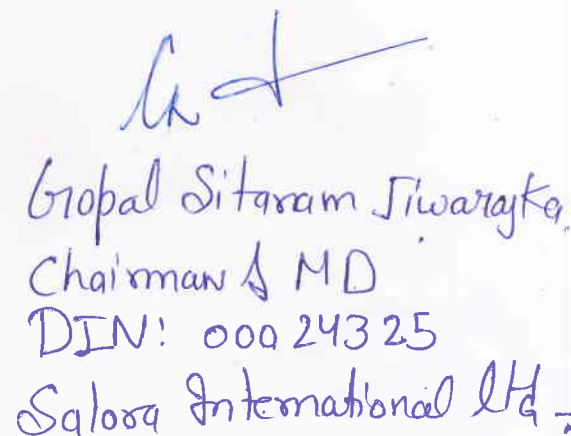 Gopal Sitaram Jiwarajka
Chairman & MD
DIN: 00024325
Salora International Ltd.